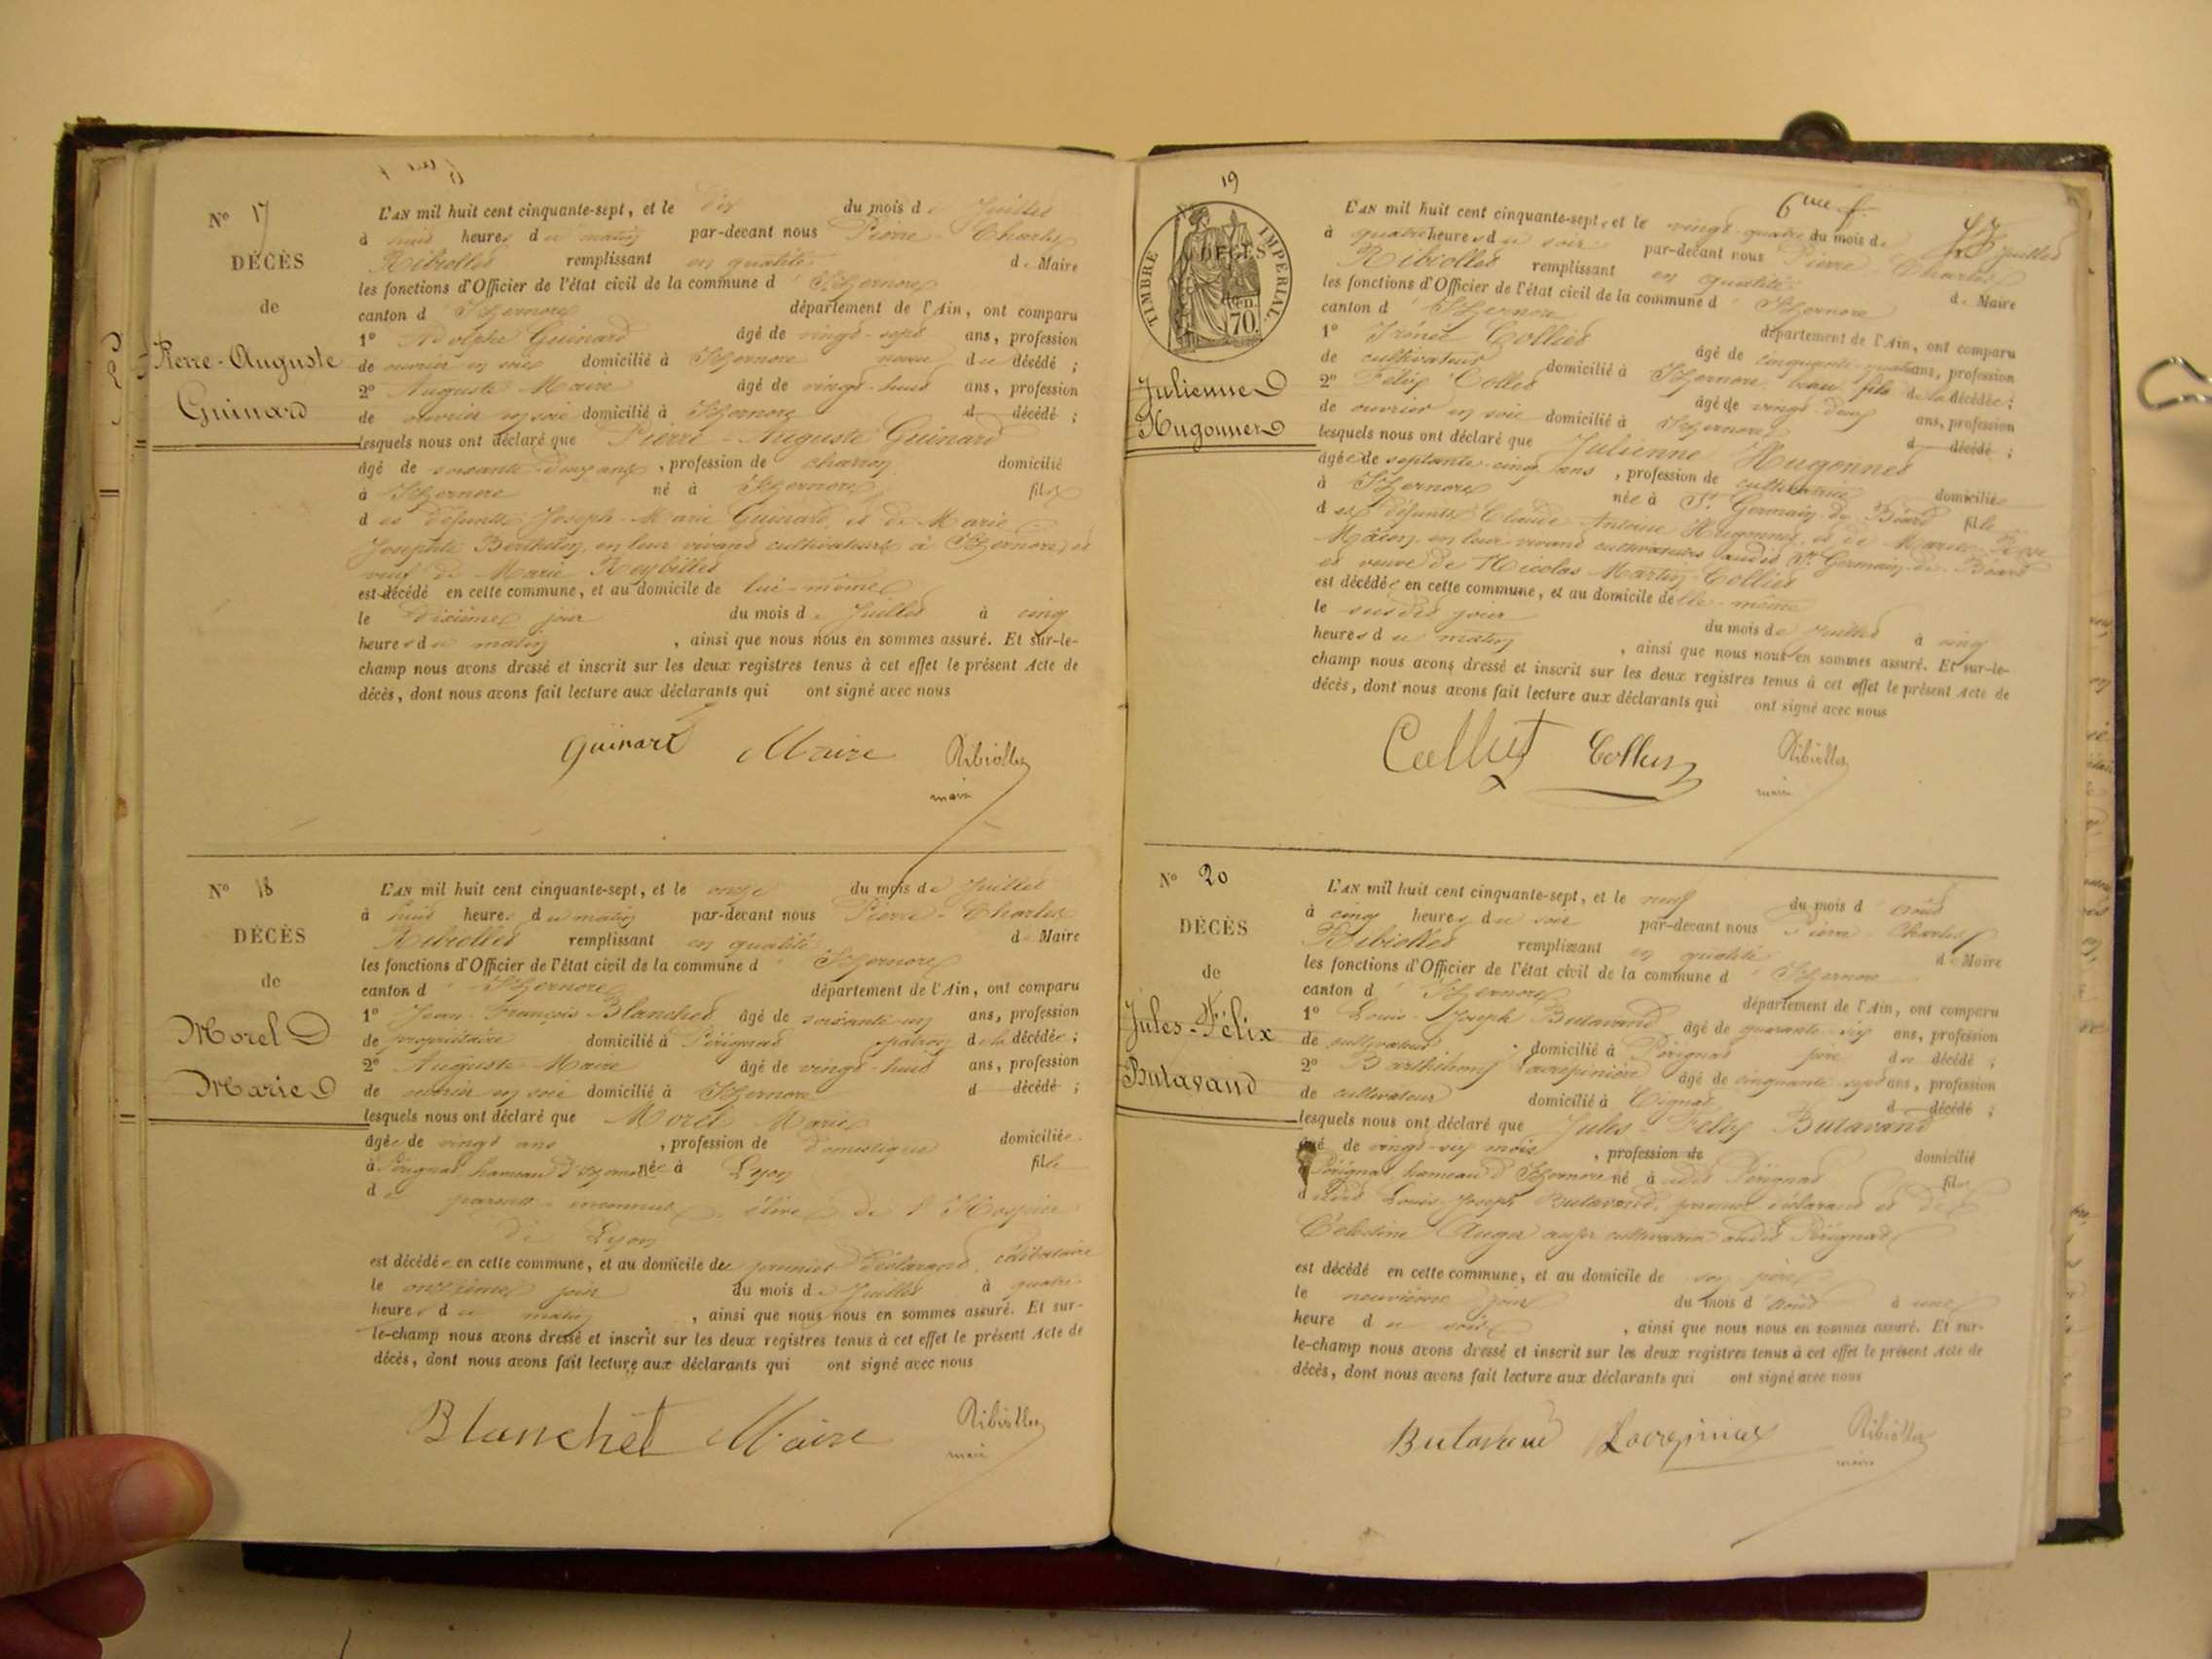 N° 17
DÉCÈS
de
Pierre-Auguste
Guinard
L'AN mil huit cent cinquante-sept, et le dix du mois de Juillet
à huit heures du matin par-devant nous Pierre Charles
Ribiollet remplissant en qualité de Maire
les fonctions d'Officier de l'état civil de la commune d'Izernore
canton d'Izernore département de l'Ain, ont comparu
1° Adolphe Guinard âgé de vingt-sept ans, profession
de ouvrier en soie domicilié à Izernore neveu du décédé ;
2° Auguste Maire âgé de vingt-huit ans, profession
de ouvrier en soie domicilié à Izernore d décédé ;
lesquels nous ont déclaré que Pierre-Auguste Guinard
âgé de soixante-deux ans, profession de charron domicilié
à Izernore né à Izernore fils
des défunts Joseph-Marie Guinard et de Marie
Josephte Berthelon, en leur vivant cultivateurs à Izernore, et
veuf de Marie Reybillet
est décédé en cette commune, et au domicile de lui-même
le dixième jour du mois de Juillet à cinq
heures du matin, ainsi que nous nous en sommes assuré. Et sur-le-
champ nous avons dressé et inscrit sur les deux registres tenus à cet effet le présent Acte de
décès, dont nous avons fait lecture aux déclarants qui ont signé avec nous
Guinard Maire Ribiollet
maire
N° 18
DÉCÈS
de
Morel
Marie
L'AN mil huit cent cinquante-sept, et le onze du mois de Juillet
à huit heures du matin par-devant nous Pierre-Charles
Ribiollet remplissant en qualité de Maire
les fonctions d'Officier de l'état civil de la commune d'Izernore
canton d'Izernore département de l'Ain, ont comparu
1° Jean-François Blanchet âgé de soixante-un ans, profession
de propriétaire domicilié à Pérignat patron de la décédée ;
2° Auguste Maire âgé de vingt-huit ans, profession
de ouvrier en soie domicilié à Izernore d décédé ;
lesquels nous ont déclaré que Morel Marie
âgée de vingt ans, profession de domestique domiciliée
à Pérignat hameau d'Izernore née à Lyon fille
de parents inconnus, élève de l'Hospice
de Lyon
est décédée en cette commune, et au domicile du premier déclarant, célibataire
le onzième jour du mois de Juillet à quatre
heures du matin, ainsi que nous nous en sommes assuré. Et sur-
le-champ nous avons dressé et inscrit sur les deux registres tenus à cet effet le présent Acte de
décès, dont nous avons fait lecture aux déclarants qui ont signé avec nous
Blanchet Maire Ribiollet
maire
19
6me f.
TIMBRE IMPÉRIAL
DÉCÈS
70
Julienne
Hugonnet
L'AN mil huit cent cinquante-sept, et le vingt-quatre du mois de Juillet
à quatre heures du soir par-devant nous Pierre Charles
Ribiollet remplissant en qualité de Maire
les fonctions d'Officier de l'état civil de la commune d'Izernore
canton d'Izernore département de l'Ain, ont comparu
1° Irénée Collet âgé de cinquante-quatre ans, profession
de cultivateur domicilié à Izernore beau fils de la décédée ;
2° Félix Collet âgé de vingt-deux ans, profession
de ouvrier en soie domicilié à Izernore d décédé ;
lesquels nous ont déclaré que Julienne Hugonnet
âgée de septante-cinq ans, profession de cultivatrice domiciliée
à Izernore née à St Germain de Béard fille
des défunts Claude Antoine Hugonnet et de Marie
Mâcon, en leur vivant cultivateurs audit St Germain-de-Béard
et veuve de Nicolas Martin Collet
est décédée en cette commune, et au domicile d'elle-même
le susdit jour du mois de Juillet à cinq
heures du matin, ainsi que nous nous en sommes assuré. Et sur-le-
champ nous avons dressé et inscrit sur les deux registres tenus à cet effet le présent Acte de
décès, dont nous avons fait lecture aux déclarants qui ont signé avec nous
Collet Collet Ribiollet
maire
N° 20
DÉCÈS
de
Jules-Félix
Butavand
L'AN mil huit cent cinquante-sept, et le neuf du mois d'Août
à cinq heures du soir par-devant nous Pierre-Charles
Ribiollet remplissant en qualité de Maire
les fonctions d'Officier de l'état civil de la commune d'Izernore
canton d'Izernore département de l'Ain, ont comparu
1° Louis-Joseph Butavand âgé de quarante-six ans, profession
de cultivateur domicilié à Pérignat père du décédé ;
2° Barthélemy Lacrepinière âgé de cinquante-sept ans, profession
de cultivateur domicilié à d décédé ;
lesquels nous ont déclaré que Jules Félix Butavand
âgé de vingt-six mois, profession de domicilié
à Pérignat hameau d'Izernore né à udit Pérignat fils
dudit Louis-Joseph Butavand, premier déclarant et de
Célestine Auger aussi cultivatrice audit Pérignat
est décédé en cette commune, et au domicile de son père
le neuvième jour du mois d'Août à une
heure du soir, ainsi que nous nous en sommes assuré. Et sur-
le-champ nous avons dressé et inscrit sur les deux registres tenus à cet effet le présent Acte de
décès, dont nous avons fait lecture aux déclarants qui ont signé avec nous
Butavand Ribiollet
maire